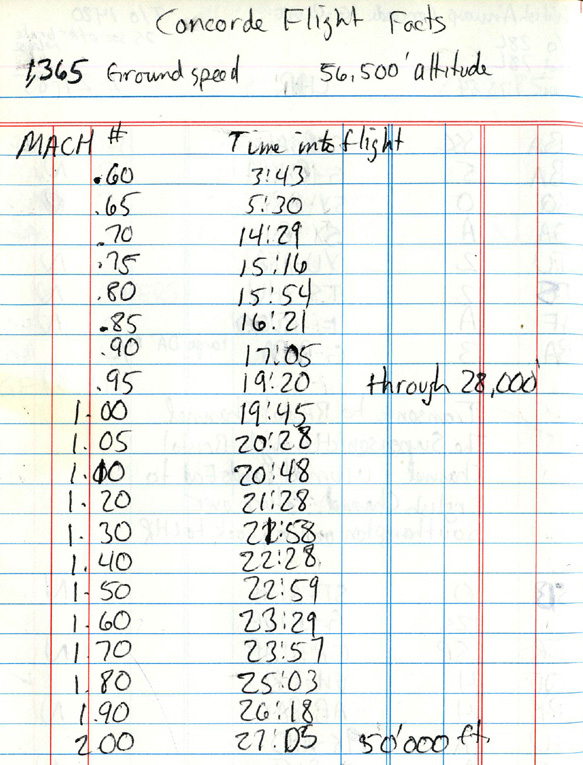 Concorde Flight Facts
1,365 Ground speed 56,500' altitude
MACH # Time into flight
.60 3:43
.65 5:30
.70 14:29
.75 15:16
.80 15:54
.85 16:21
.90 17:05
.95 19:20 through 28,000'
1.00 19:45
1.05 20:28
1.10 20:48
1.20 21:28
1.30 21:58
1.40 22:28
1.50 22:59
1.60 23:29
1.70 23:57
1.80 25:03
1.90 26:18
2.00 27:05 50'000 ft.